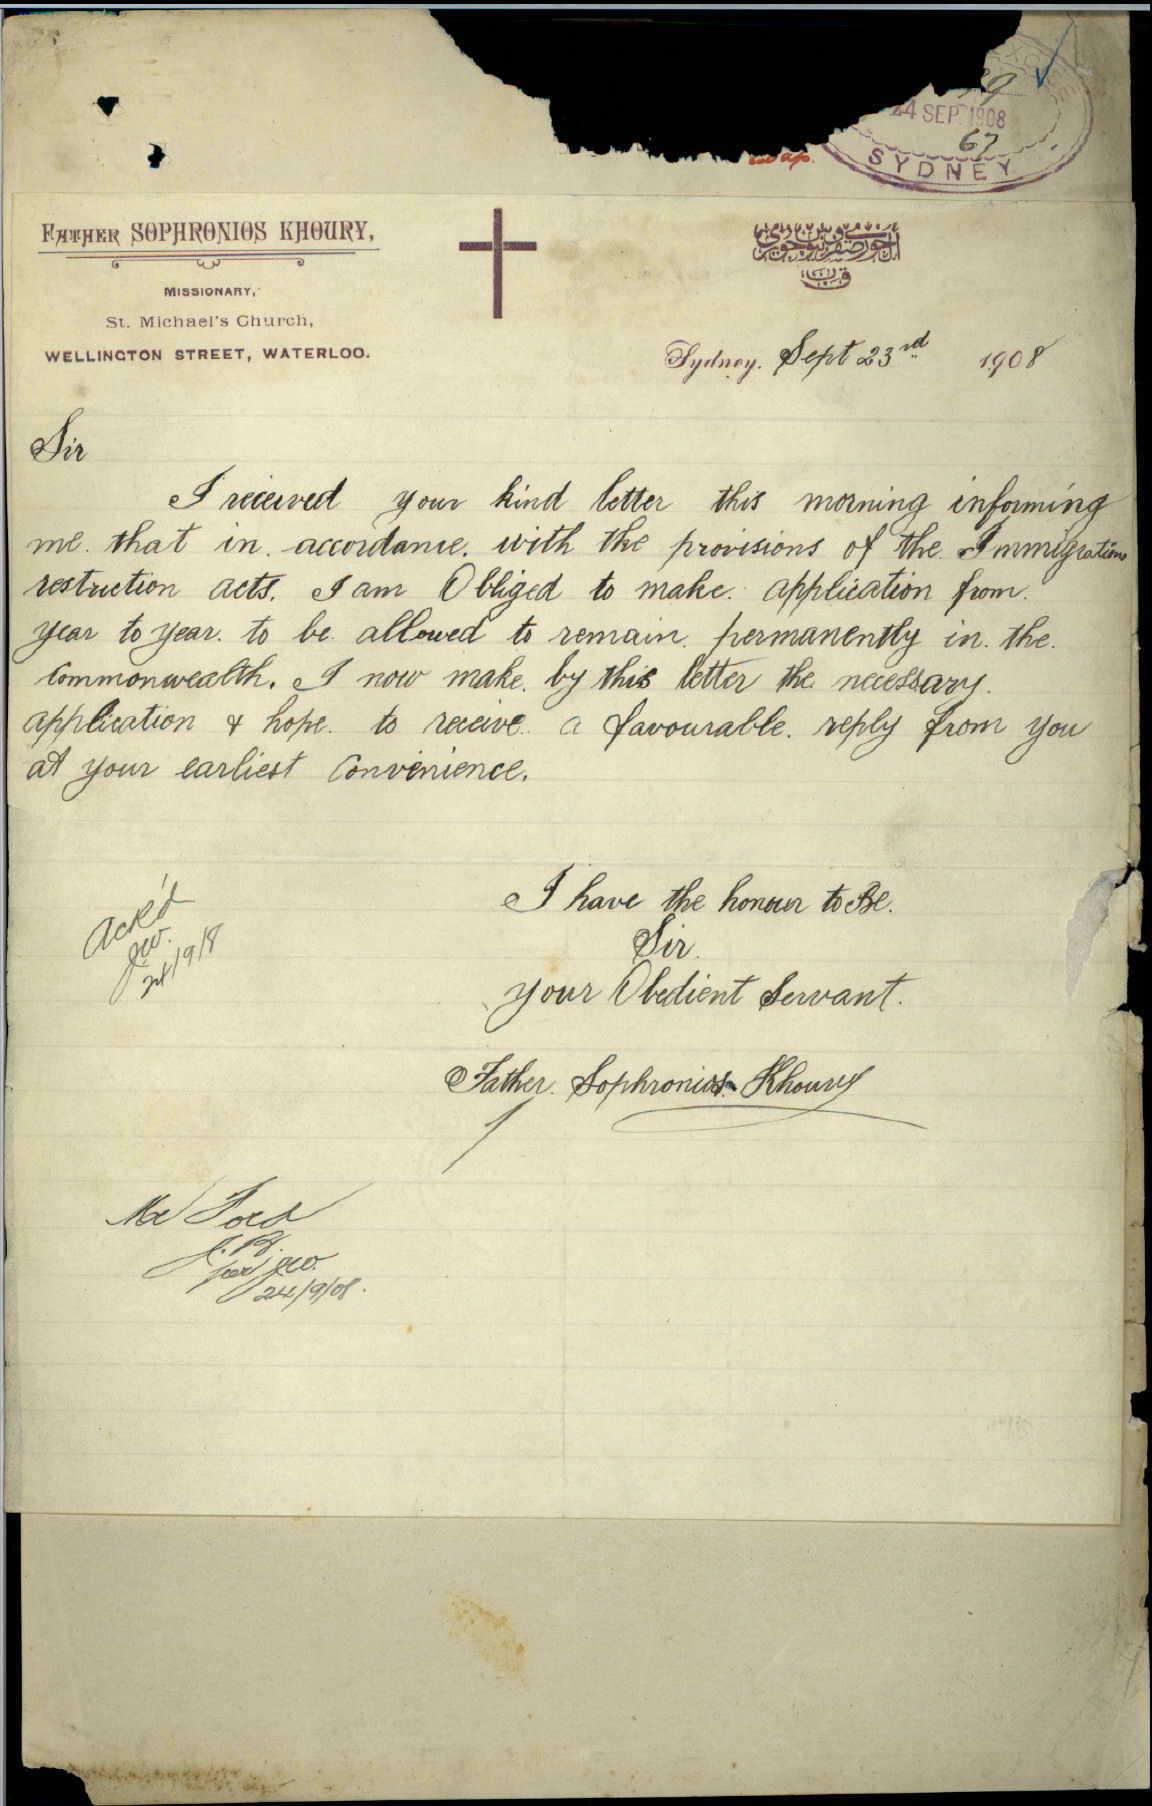 24 SEP 1908
67
SYDNEY
FATHER SOPHRONIOS KHOURY,
MISSIONARY,
St. Michael's Church,
WELLINGTON STREET, WATERLOO.
Sydney. Sept 23rd 1908
Sir
I received your kind letter this morning informing
me. that in. accordance. with the provisions of the. Immigrations
restruction acts. I am Obliged to make. application from.
year to year. to be. allowed to remain. permanently in. the.
Commonwealth. I now make. by this letter the necessary.
application & hope. to receive. a favourable. reply from you
at your earliest Convenience.
I have the honour to Be.
Sir.
your Obedient Servant.
Father. Sophronios Khoury
Ack'd
JW.
24/9/8
Mr Ford
per JW.
24/9/08.